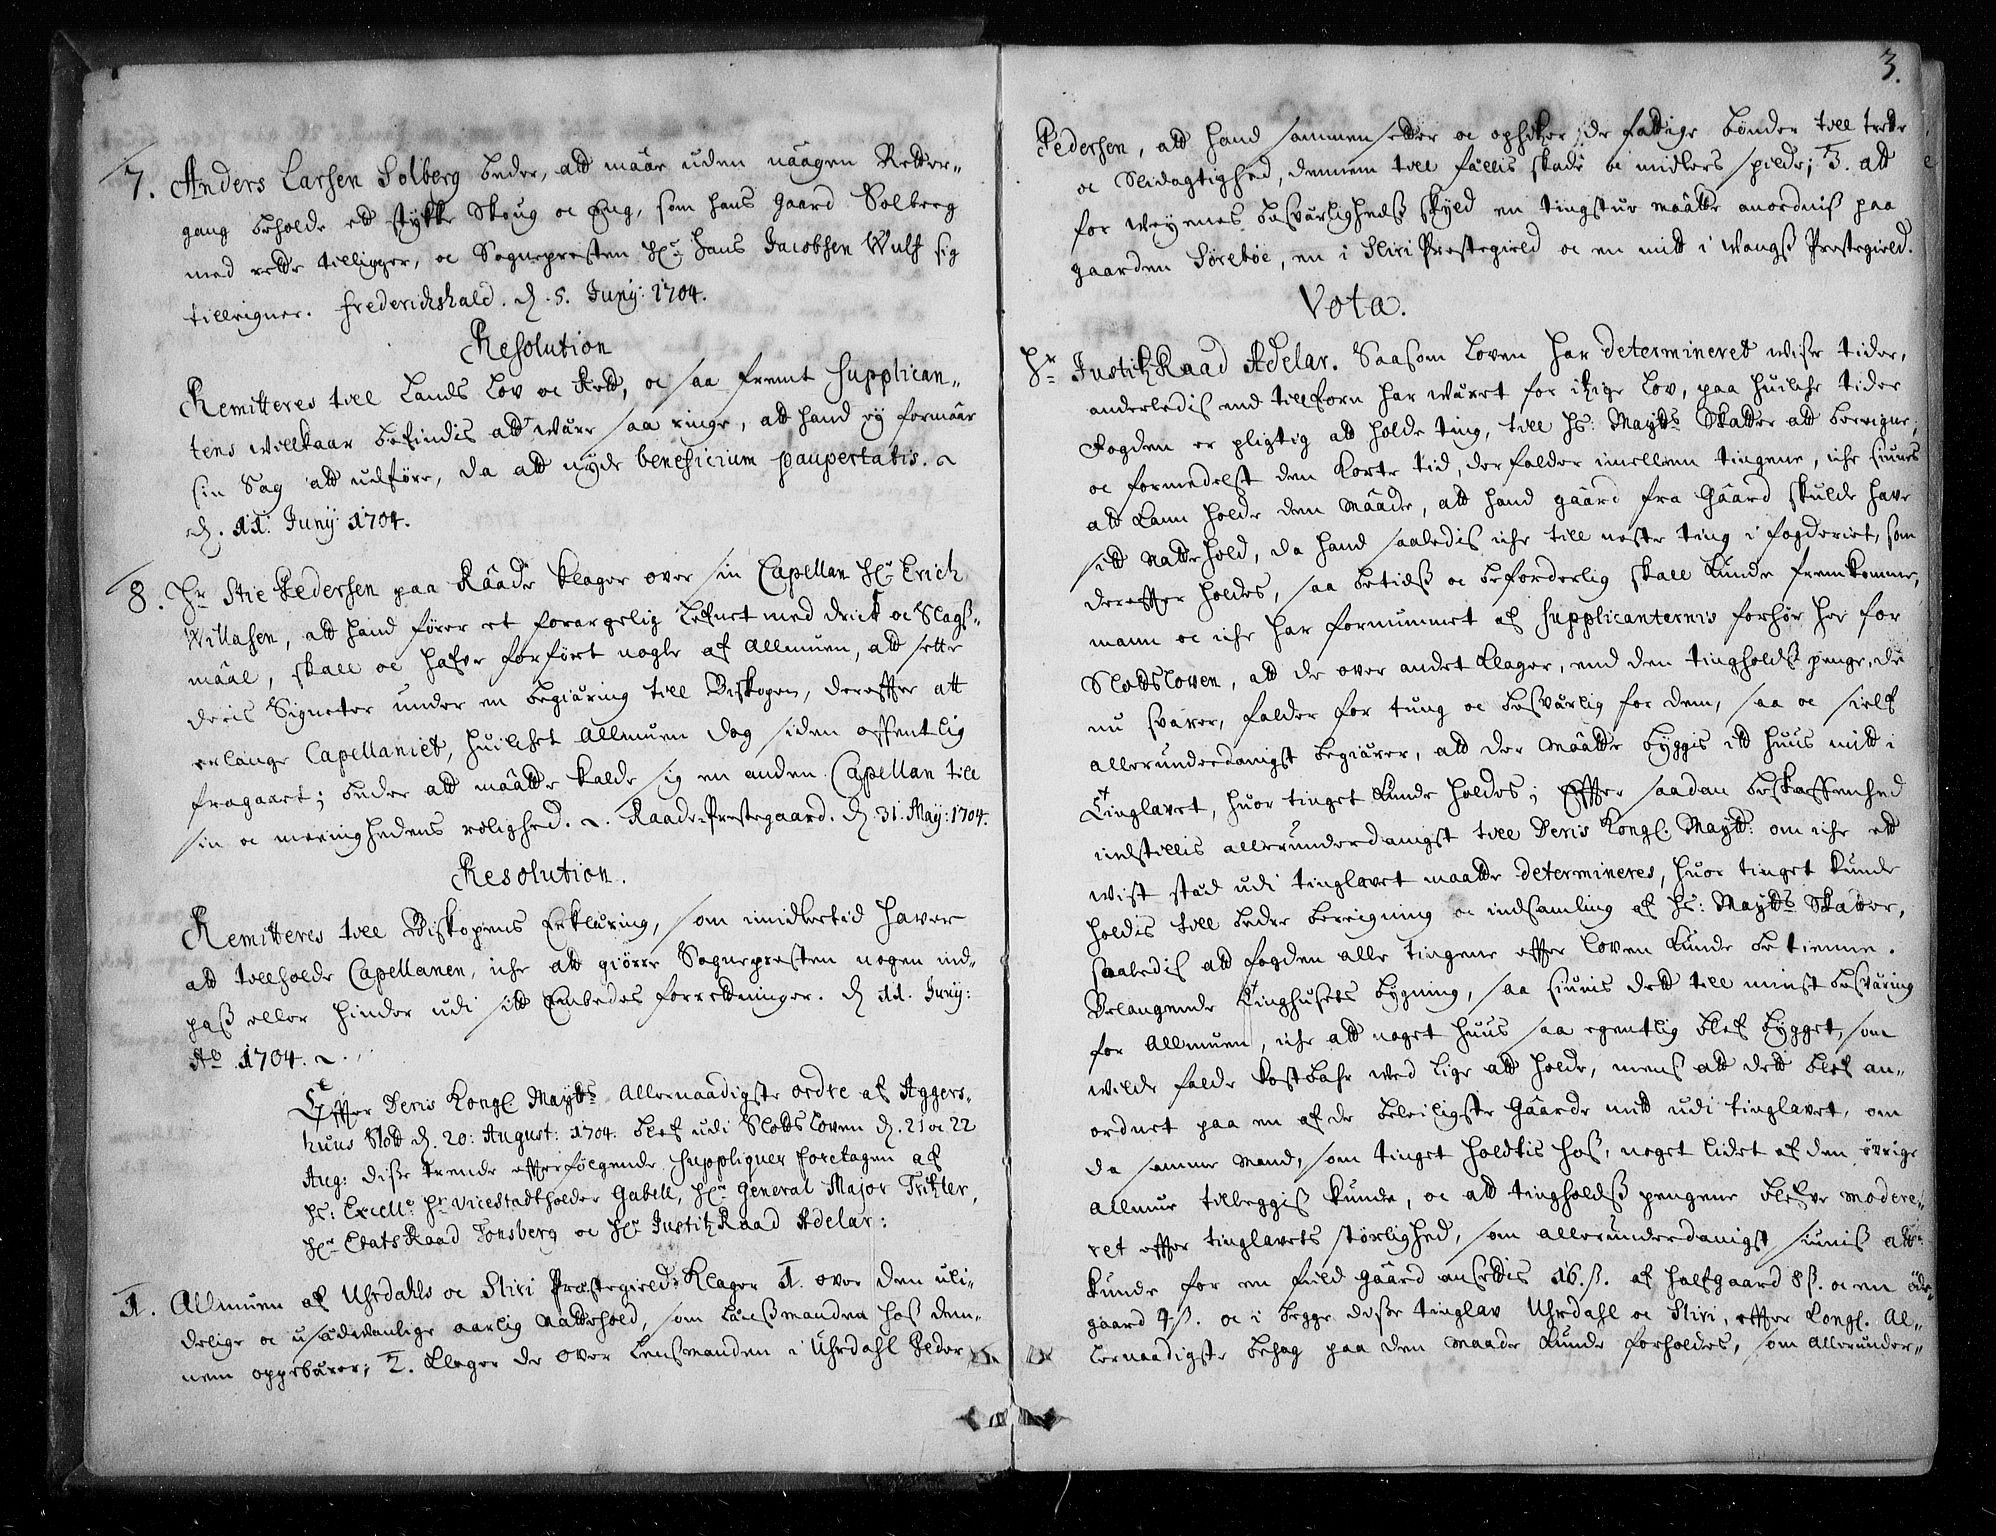 7. Anders Larsen Solberg beder, att måtte uden naagen Retter-
gang beholde ett stykke Skoug oc Eng, som hans gaard Solberg
med rette tilligger, oc Sognepresten Hr. Hans Jacobsen Wulf sig
tilleigner. Frederichshald. d. 5. Junÿ: 1704.
Resolution
Remitteres till Lands Lov oc Rett, oc saa fremt supplican-
tens willkaar befindis att wære saa ringe, att hand eÿ formåar
sin Sag att udføre, da att nÿde beneficium paupertatis.
d. 11. Junÿ 1704.
8. Hr. Stie Pedersen paa Råade klager over sin Capellan Hr. Erich
Willasen, att hand fører et forargelig Lefnet med drick oc Slags-
måal, skall oc hafve forført nogle af Allmuen, att sette
deris Signeter under en begiæring till Biskopen, derefter att
erlange Capellaniet, huilchet Allmuen dog siden offentlig
fragaaet; beder att måatte kalde sig en anden Capellan till
sin oc meenighedens rolighed. Raade-Prestegaard. d. 31. Maÿ: 1704.
Resolution.
Remitteres till Biskopens Erklæring, som imidlertid haver
att tilholde Capellanen, iche att giørre Sognepresten nogen ind-
pass eller hinder udi sitt Embedes forrettninger. d. 11. Junÿ:
Ao 1704.
Effter Deris Kongl. Maÿtts Allernaadigste ordre af Aggers-
huus Slott d. 20: August: 1704. blef udi Slottsloven d. 21 oc 22
Aug: disse trende efterfølgende suppliquer foretagen af
Hs: Excell. Hr. Vicestadtholder Gabell, Hr. General Major Tritzler,
Hr. Etats Raad Tonsberg oc Hr. Justitz Raad Adelar:
1. Allmuen af Uhrdahls oc Sliri Prestegield: Klager 1. over den uli-
delige oc usædvanlige aarlig Nattehold, som Lænssmanden hoss dem-
nem oppebærer; 2. Klager de over Lensmanden i Uhrdahl Peder
3.
Pedersen, att hand sammensetter oc ophidser de fattige bønder till trette
oc Slidagtighed, dennem till fællis skade oc midlers spilde; 3. att
for Weÿenes besværligheds skÿld en tingstue måatte anordnis paa
gaarden Sørebøe, en i Sliri Prestegield oc en mitt i Wangs Prestegield.
Vota.
Hr. Justitz Raad Adelar. Saasom Loven har determineret wisse tider,
anderledis end tillforn har wæret for itzige Lov, paa huilche tider
Fogden er pligtig att holde ting, till Hs: Maÿtts Skatter att beregne,
oc formedelst den korte tid, der falder imellem tingene, iche siunes
att kunn holde den Måade, att hand gåard fra Gåard skulde have
sitt Nattehold, da hand saaledis iche till neste ting i fogderiet, som
derefter holdes, saa betids oc beforderlig skall kunde fremkomme,
mens oc iche har fornummet af supplicanternis forhør her for
Slottsloven, att de over andet klager, end den tingholds penge, de
nu svarer, falder for tung oc besværlig for dem, saa oc sielf
allerunderdanigst begiærer, att der måatte bÿggis itt huus mitt i
Tinglavet, huor tinget kunde holdes; Effter saadan beskaffenhed
indstillis allerunderdanigst till Deris Kongl. Maÿtt: om iche ett
wist stæd udi tinglavet maatte determineres, huor tinget kunde
holdis till bedre beregning oc indsamling af Hs: Maÿtts Skatter,
saaledis att fogden alle tingene effter Loven kunde betienne.
Belangende Tinghusets bÿgning, saa siunis dett till minst besværing
for Allmuen, iche att noget huus saa egentlig blef bÿgget, som
wilde falde kostbahr wed lige att holde, mens att dett blef an-
ordnet paa en af de beleiligste Gåarde mitt udi tinglavet, om
da samme Mand, som tinget holdtis hos, noget lidet af den øvrige
Allmue tilleggis kunde, oc att tingholds pengene blefve modere-
ret effter tinglavets størlighed, som allerunderdanigst siunis att
kunde for en fuld gåard ansettis 16. ß. af halfgaard 8 ß. oc en øde-
gaard 4 ß. oc i begge disse tinglav Uhrdahl oc Sliri, effter Kongl. Al-
lernaadigste behag paa den Maade kunde forholdes, som Allerunder-